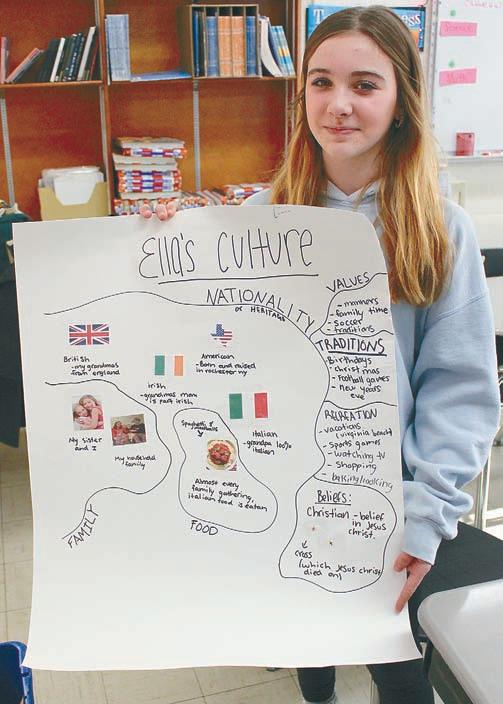 Ella's Culture
NATIONALITY
or HERITAGE
British
- my grandmas
from england
American
- Born and raised
in rochester ny
Irish
- grandmas mom
is part irish
Italian
- grandpa 100%
italian
My sister
and I
My household
family
FAMILY
Spaghetti &
meatballs
Almost every
family gathering,
italian food is eaten
FOOD
VALUES
- manners
- family time
- soccer
- traditions
TRADITIONS
- Birthdays
- christmas
- Football games
- new years
eve
RECREATION
- vacations
(virginia beach)
- Sports games
- watching tv
- Shopping
- baking/cooking
Beliefs:
Christian - belief
in Jesus
christ.
cross
(which Jesus christ
died on)
Science
Math